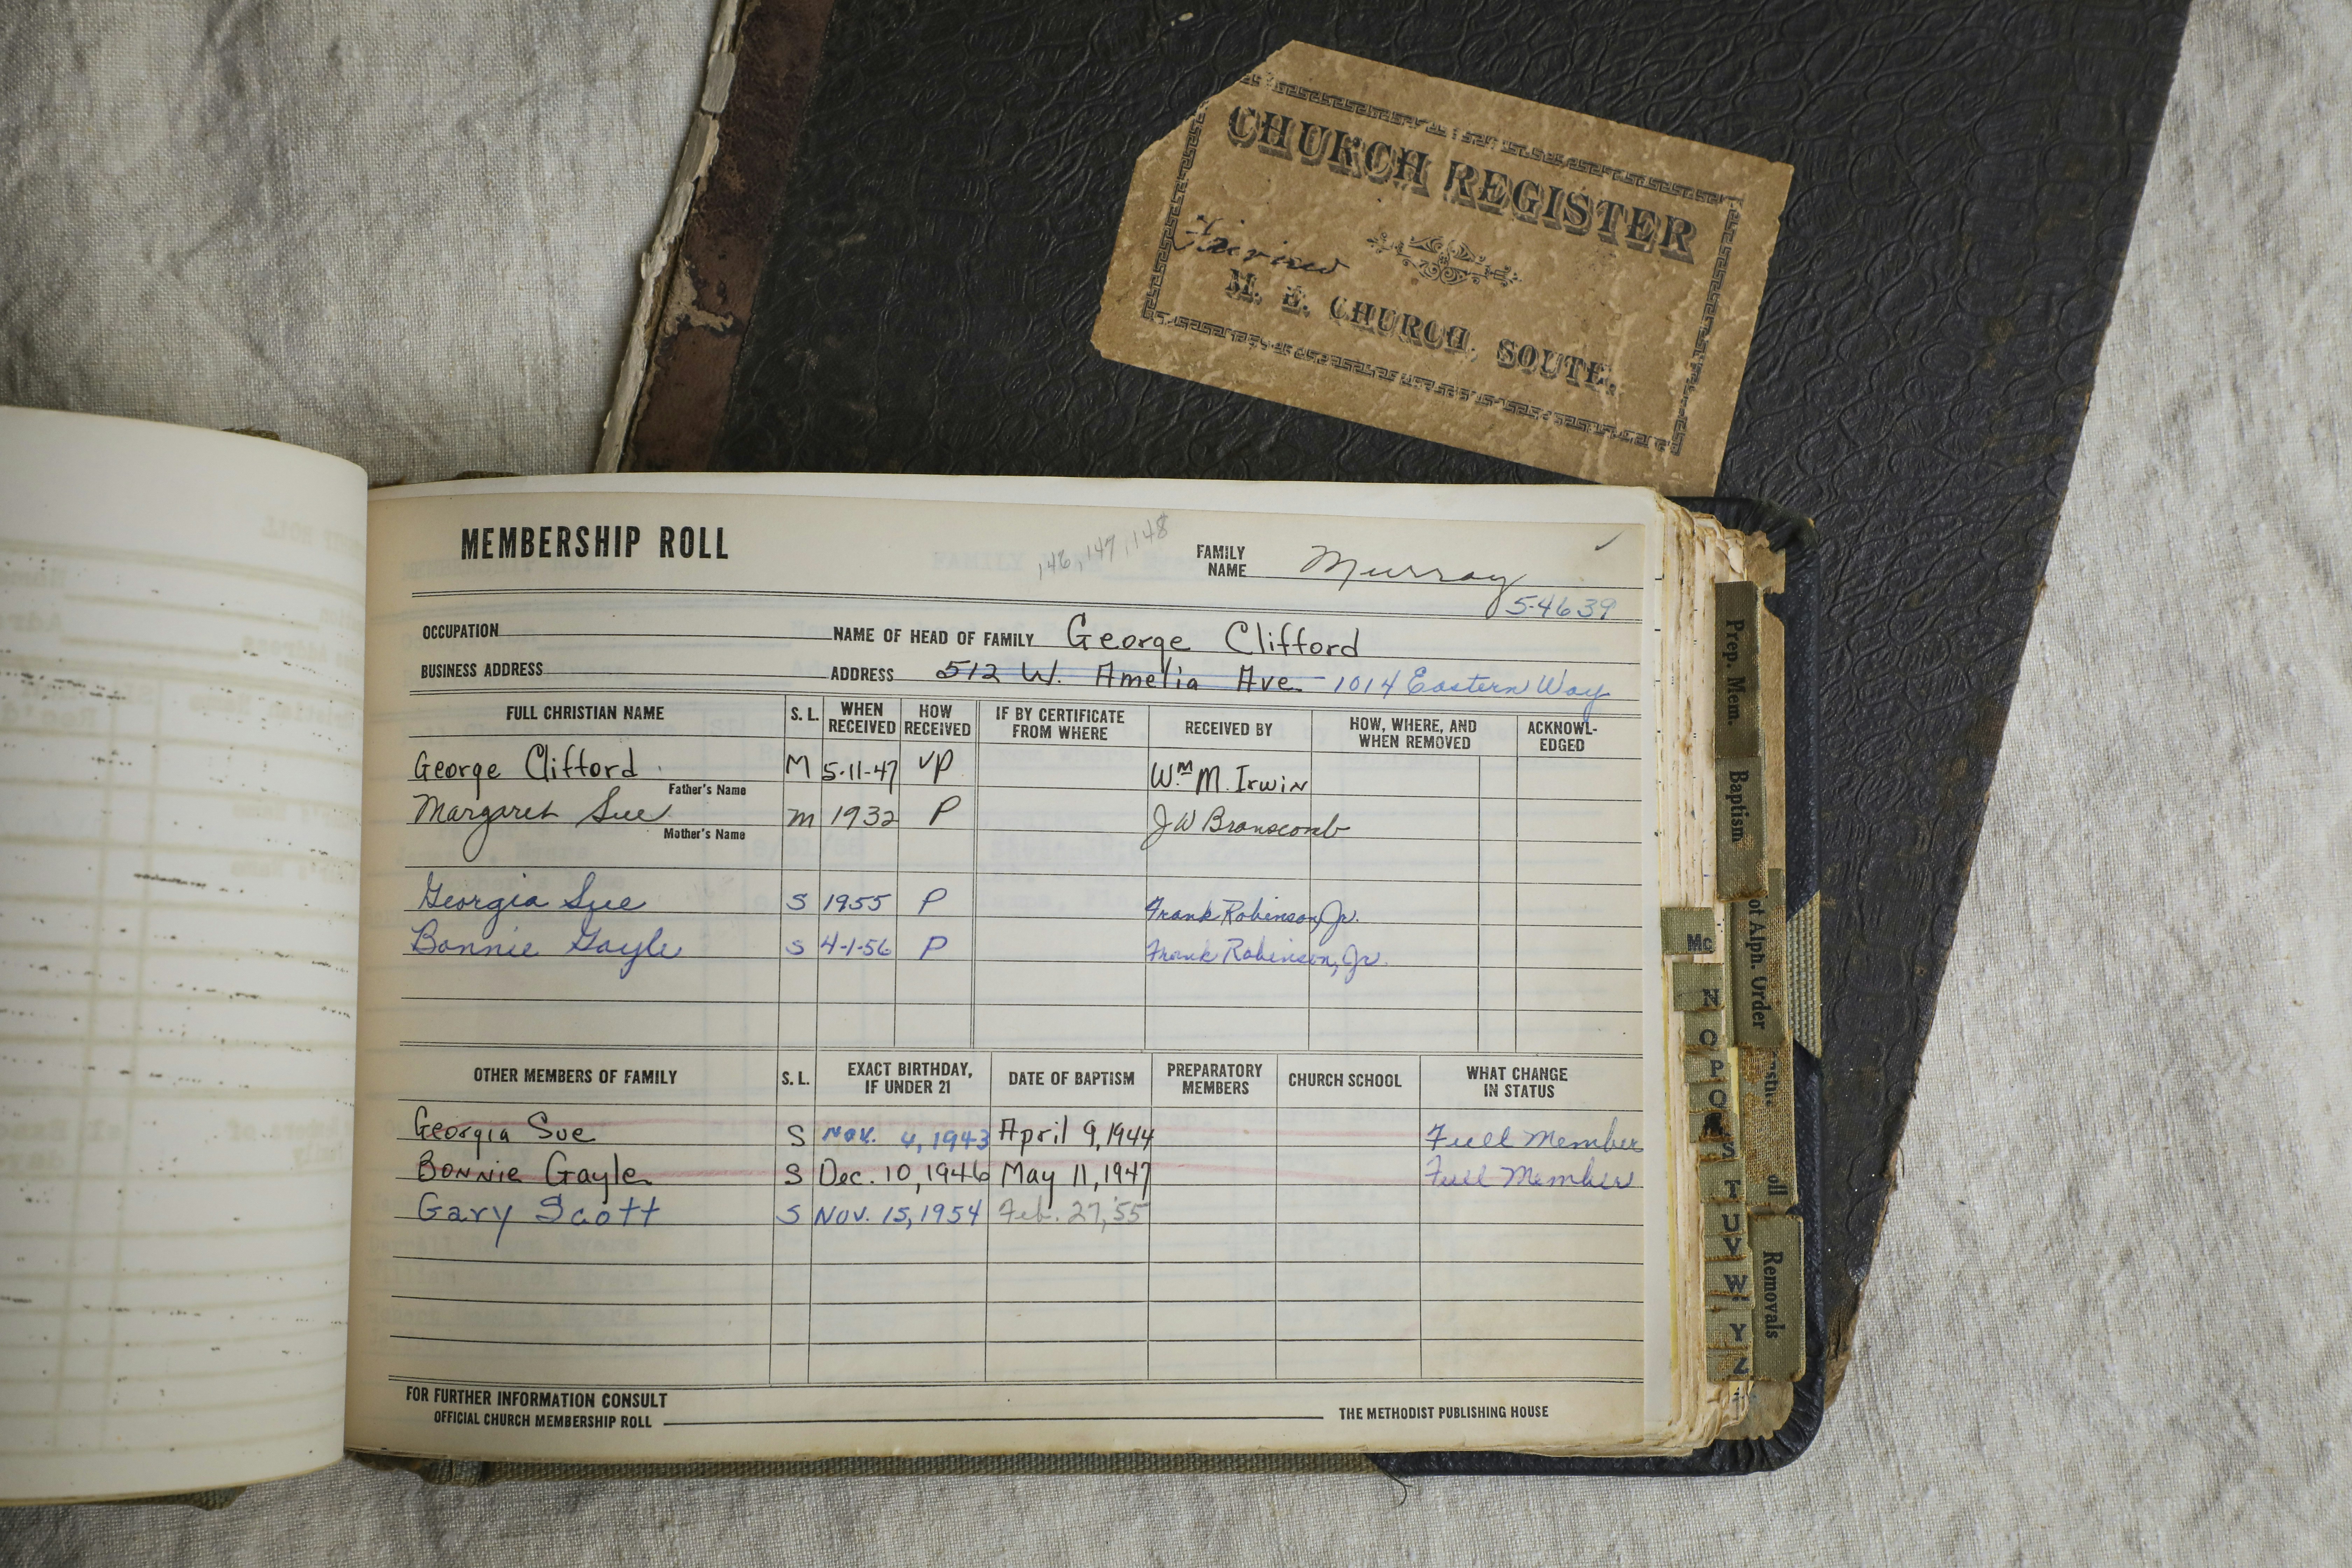 CHURCH REGISTER
M. E. CHURCH, SOUTH,
MEMBERSHIP ROLL
146, 147, 148
FAMILY NAME Murray ✓
5-4639
OCCUPATION NAME OF HEAD OF FAMILY George Clifford
BUSINESS ADDRESS ADDRESS 512 W. Amelia Ave. 1014 Eastern Way
FULL CHRISTIAN NAME S. L. WHEN RECEIVED HOW RECEIVED IF BY CERTIFICATE FROM WHERE RECEIVED BY HOW, WHERE, AND WHEN REMOVED ACKNOWL-EDGED
George Clifford M 5-11-47 VP Wm M. Irwin
Father's Name
Margaret Sue m 1932 P J W Branscomb
Mother's Name
Georgia Sue S 1955 P Frank Robinson, Jr.
Bonnie Gayle S 4-1-56 P Frank Robinson, Jr.
OTHER MEMBERS OF FAMILY S. L. EXACT BIRTHDAY, IF UNDER 21 DATE OF BAPTISM PREPARATORY MEMBERS CHURCH SCHOOL WHAT CHANGE IN STATUS
Georgia Sue S Nov. 4, 1943 April 9, 1944 Full Member
Bonnie Gayle S Dec. 10, 1946 May 11, 1947 Full Member
Gary Scott S Nov. 15, 1954 Feb. 27, '55
FOR FURTHER INFORMATION CONSULT
OFFICIAL CHURCH MEMBERSHIP ROLL THE METHODIST PUBLISHING HOUSE
Prep. Mem.
Baptism
Alph. Order
Removals
Mc
N
O
P
Q
S
T
U
V
W
Y
Z